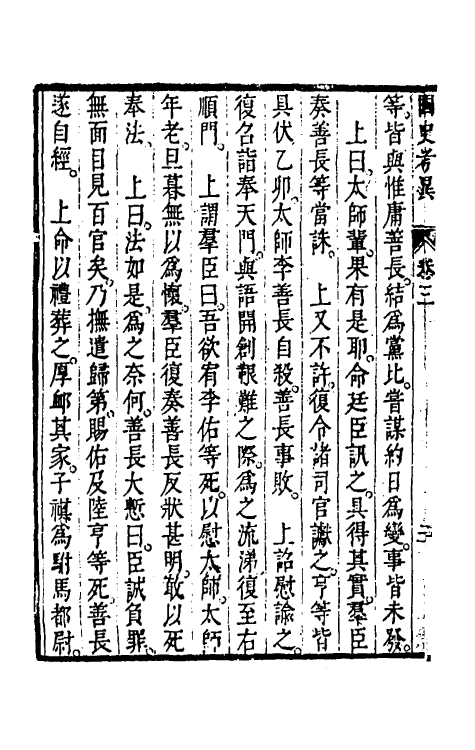 國史考異 卷三
等。皆與惟庸善長。結爲黨比。嘗謀約日爲變。事皆未發。
上曰。太師輩。果有是耶。命廷臣訊之。具得其實。羣臣
奏善長等當誅。 上又不許。復命諸司官讞之。亨等皆
具伏乙卯。太師李善長自殺。善長事敗。 上詔慰諭之。
復召詣奉天門。與語開創艱難之際。爲之流涕。復至右
順門。 上謂羣臣曰。吾欲宥李佑等死。以慰太師。太師
年老。旦暮無以爲懷。羣臣復奏善長反狀甚明。敢以死
奉法。 上曰。法如是。爲之奈何。善長大慙曰。臣誠負罪。
無面目見百官矣。乃撫遣歸第。賜佑及陸亨等死。善長
遂自經。 上命以禮葬之。厚䘏其家。子祺爲駙馬都尉。